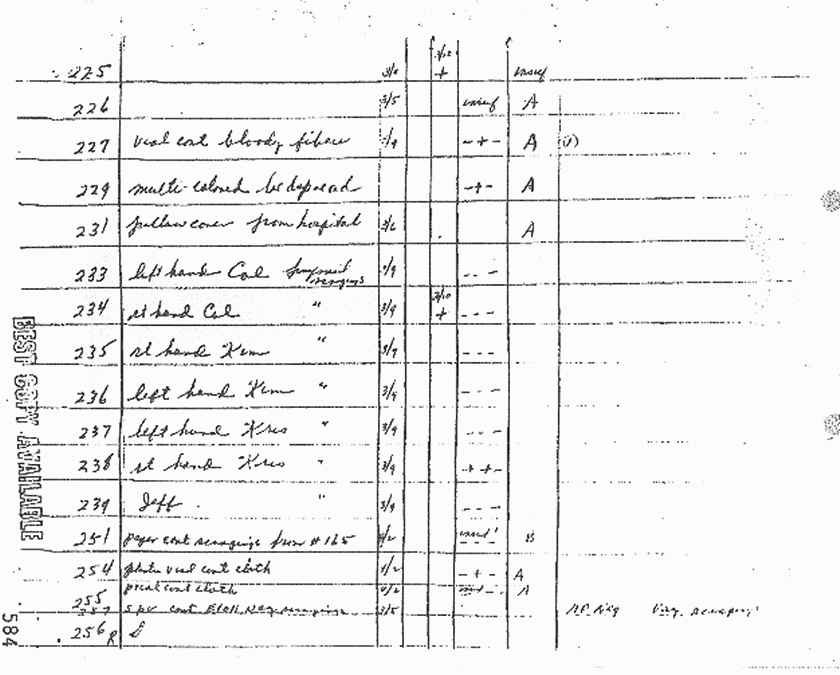 3/12
225 3/4 + insuf
226 3/5 insuf A
227 vial cont bloody fibers 3/9 - + - A (1)
229 multi-colored bedspread - + - A
231 pillow cover from hospital 3/6 A
233 left hand Col fingernail scrapings 3/9 - - -
3/10
234 rt hand Col " 3/9 + - - -
235 rt hand Kim " 3/9 - - -
236 left hand Kim " 3/9 - - -
237 left hand Kris " 3/9 - - -
238 rt hand Kris " 3/9 + + -
239 Jeff " 3/9 - - -
251 paper cont scrapings from #165 B
254 vial cont cloth - + - A
255 cont cloth A
cont scrapings 3/5 scrapings
256 R D
BEST COPY AVAILABLE
584